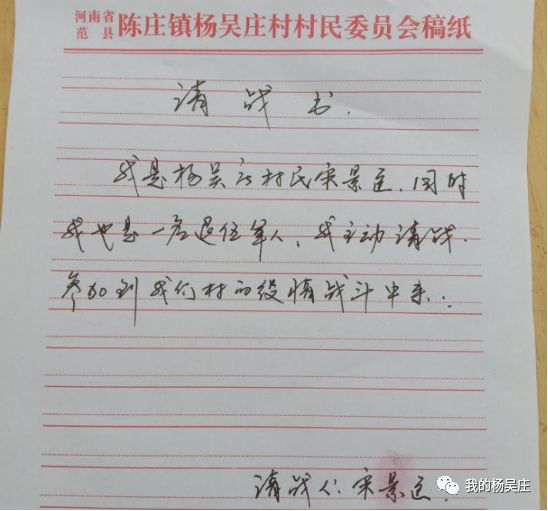 河南省
范县
陈庄镇杨吴庄村村民委员会稿纸
请战书.
我是杨吴庄村民宋景,同时
我也是一名退伍军人,我主动请战.
参加到我们村的役情战斗中来.
请战人:宋景
我的杨吴庄